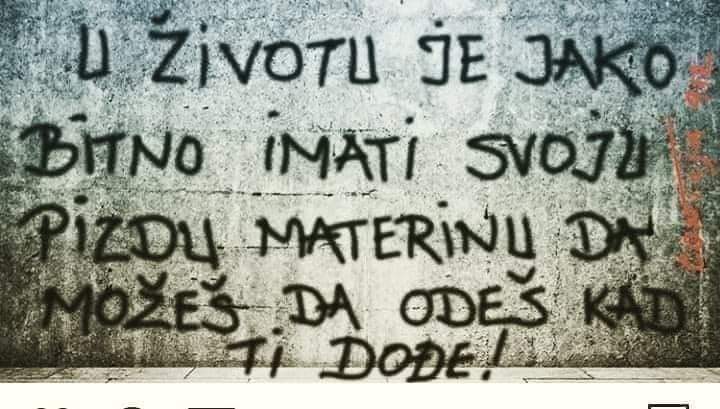 U ŽIVOTU JE JAKO
BITNO IMATI SVOJU
PIZDU MATERINU DA
MOŽEŠ DA ODEŠ KAD
TI DOĐE!